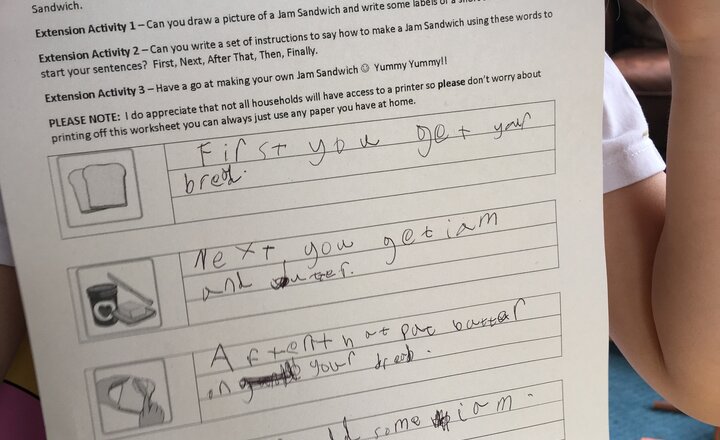 Sandwich.
Extension Activity 1 – Can you draw a picture of a Jam Sandwich and write some labels or a short
Extension Activity 2 – Can you write a set of instructions to say how to make a Jam Sandwich using these words to
start your sentences? First, Next, After That, Then, Finally.
Extension Activity 3 – Have a go at making your own Jam Sandwich ☺ Yummy Yummy!!
PLEASE NOTE: I do appreciate that not all households will have access to a printer so please don't worry about
printing off this worksheet you can always just use any paper you have at home.
First you get your
bred.
Next you get jam
and buter.
After that put butter
on your bred.
some jam.